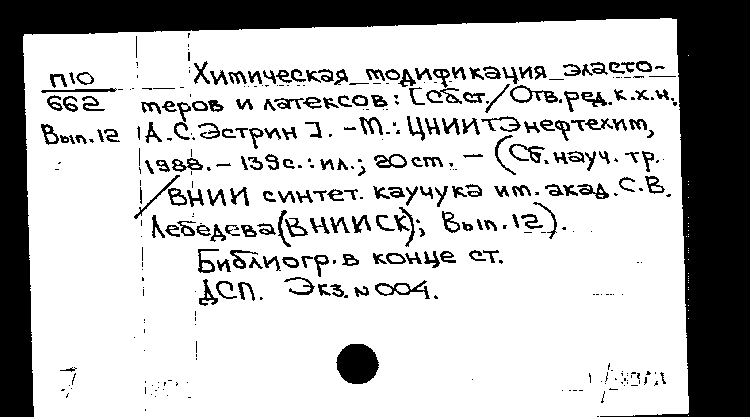 П10 Химическая модификация эласто-
662 меров и латексов: [сб.ст./Отв.ред.к.х.н.
Вып.12 А.С.Эстрин]. -М.: ЦНИИТЭнефтехим,
1988. - 139с.: ил.; 20 ст. - (Сб.науч.тр.
/ВНИИ синтет. каучука им. акад. С.В.
Лебедева(ВНИИСК); Вып.12).
Библиогр. в конце ст.
ДСП. Экз.N004.